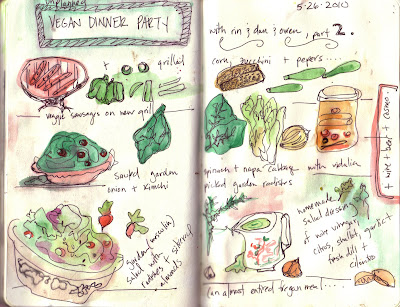 unplanned
VEGAN DINNER PARTY
+ grilled
veggie sausages on new grill
sauteed garden
onion + kimchi
garden (mesclun)
salad with
radishes + slivered
almonds
5.26.2010
with rin & dan & owen, part 2.
corn, zucchini + pepers....
spinach + napa cabbage with vidalia
picked garden radishes
homemade
salad dressing
w/ wine vinegar
citrus, shallot, garlic +
fresh dill +
cilantro
(an almost entired vegan meal....
+ wine + beer +